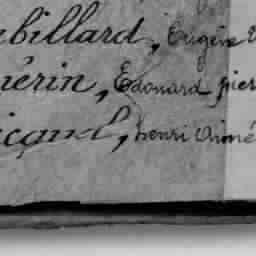 billard, Eugène
érin, Edouard pier
icaud, henri Aimé